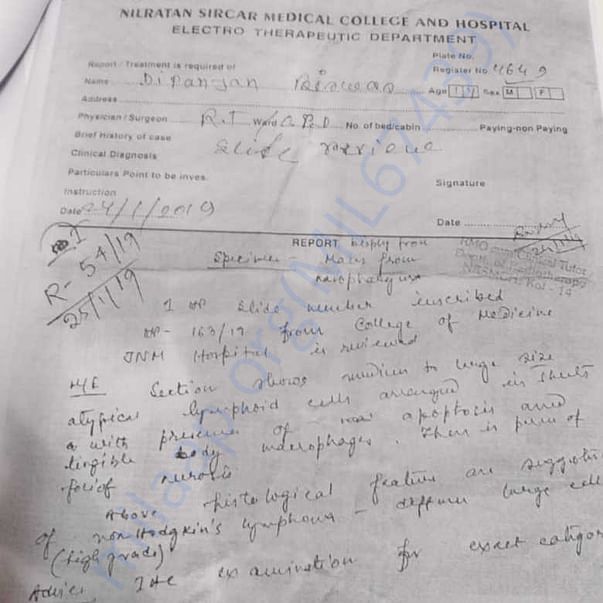 NILRATAN SIRCAR MEDICAL COLLEGE AND HOSPITAL
ELECTRO THERAPEUTIC DEPARTMENT
Plate No.
Report / Treatment is required of
Register No. 4649
Name Dipanjan Biswas Age Sex M F
Address
Physician / Surgeon R.T Ward O.P.D No. of bed/cabin Paying-non Paying
Brief History of case
Slide review
Clinical Diagnosis
Particulars Point to be inves.
Signature
Instruction
Date 24/1/2019
Date
R- 54/19
25/1/19
RMO cum Clinical Tutor
REPORT Biopsy from
Specimen - Mass from
nasopharynx
1 HP Slide number inscribed
HP- 163/19 from College of Medicine
JNM Hospital is reviewed
M/E Section shows medium to large size
atypical lymphoid cells arranged in sheets
with presence of apoptosis and
tingible body macrophages. There is
foci of necrosis
Above histological feature are suggestive
of non Hodgkin's lymphoma - diffuse large cell
(high grade)
Advice IHC examination for exact categor
milaap.org(MIL67439)